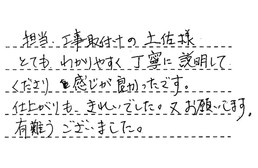 担当、工事取付けの土佐様
とても わかりやすく 丁寧に説明して
くださり 感じが良かったです。
仕上がりも、きれいでした。又お願いします。
有難うございました。